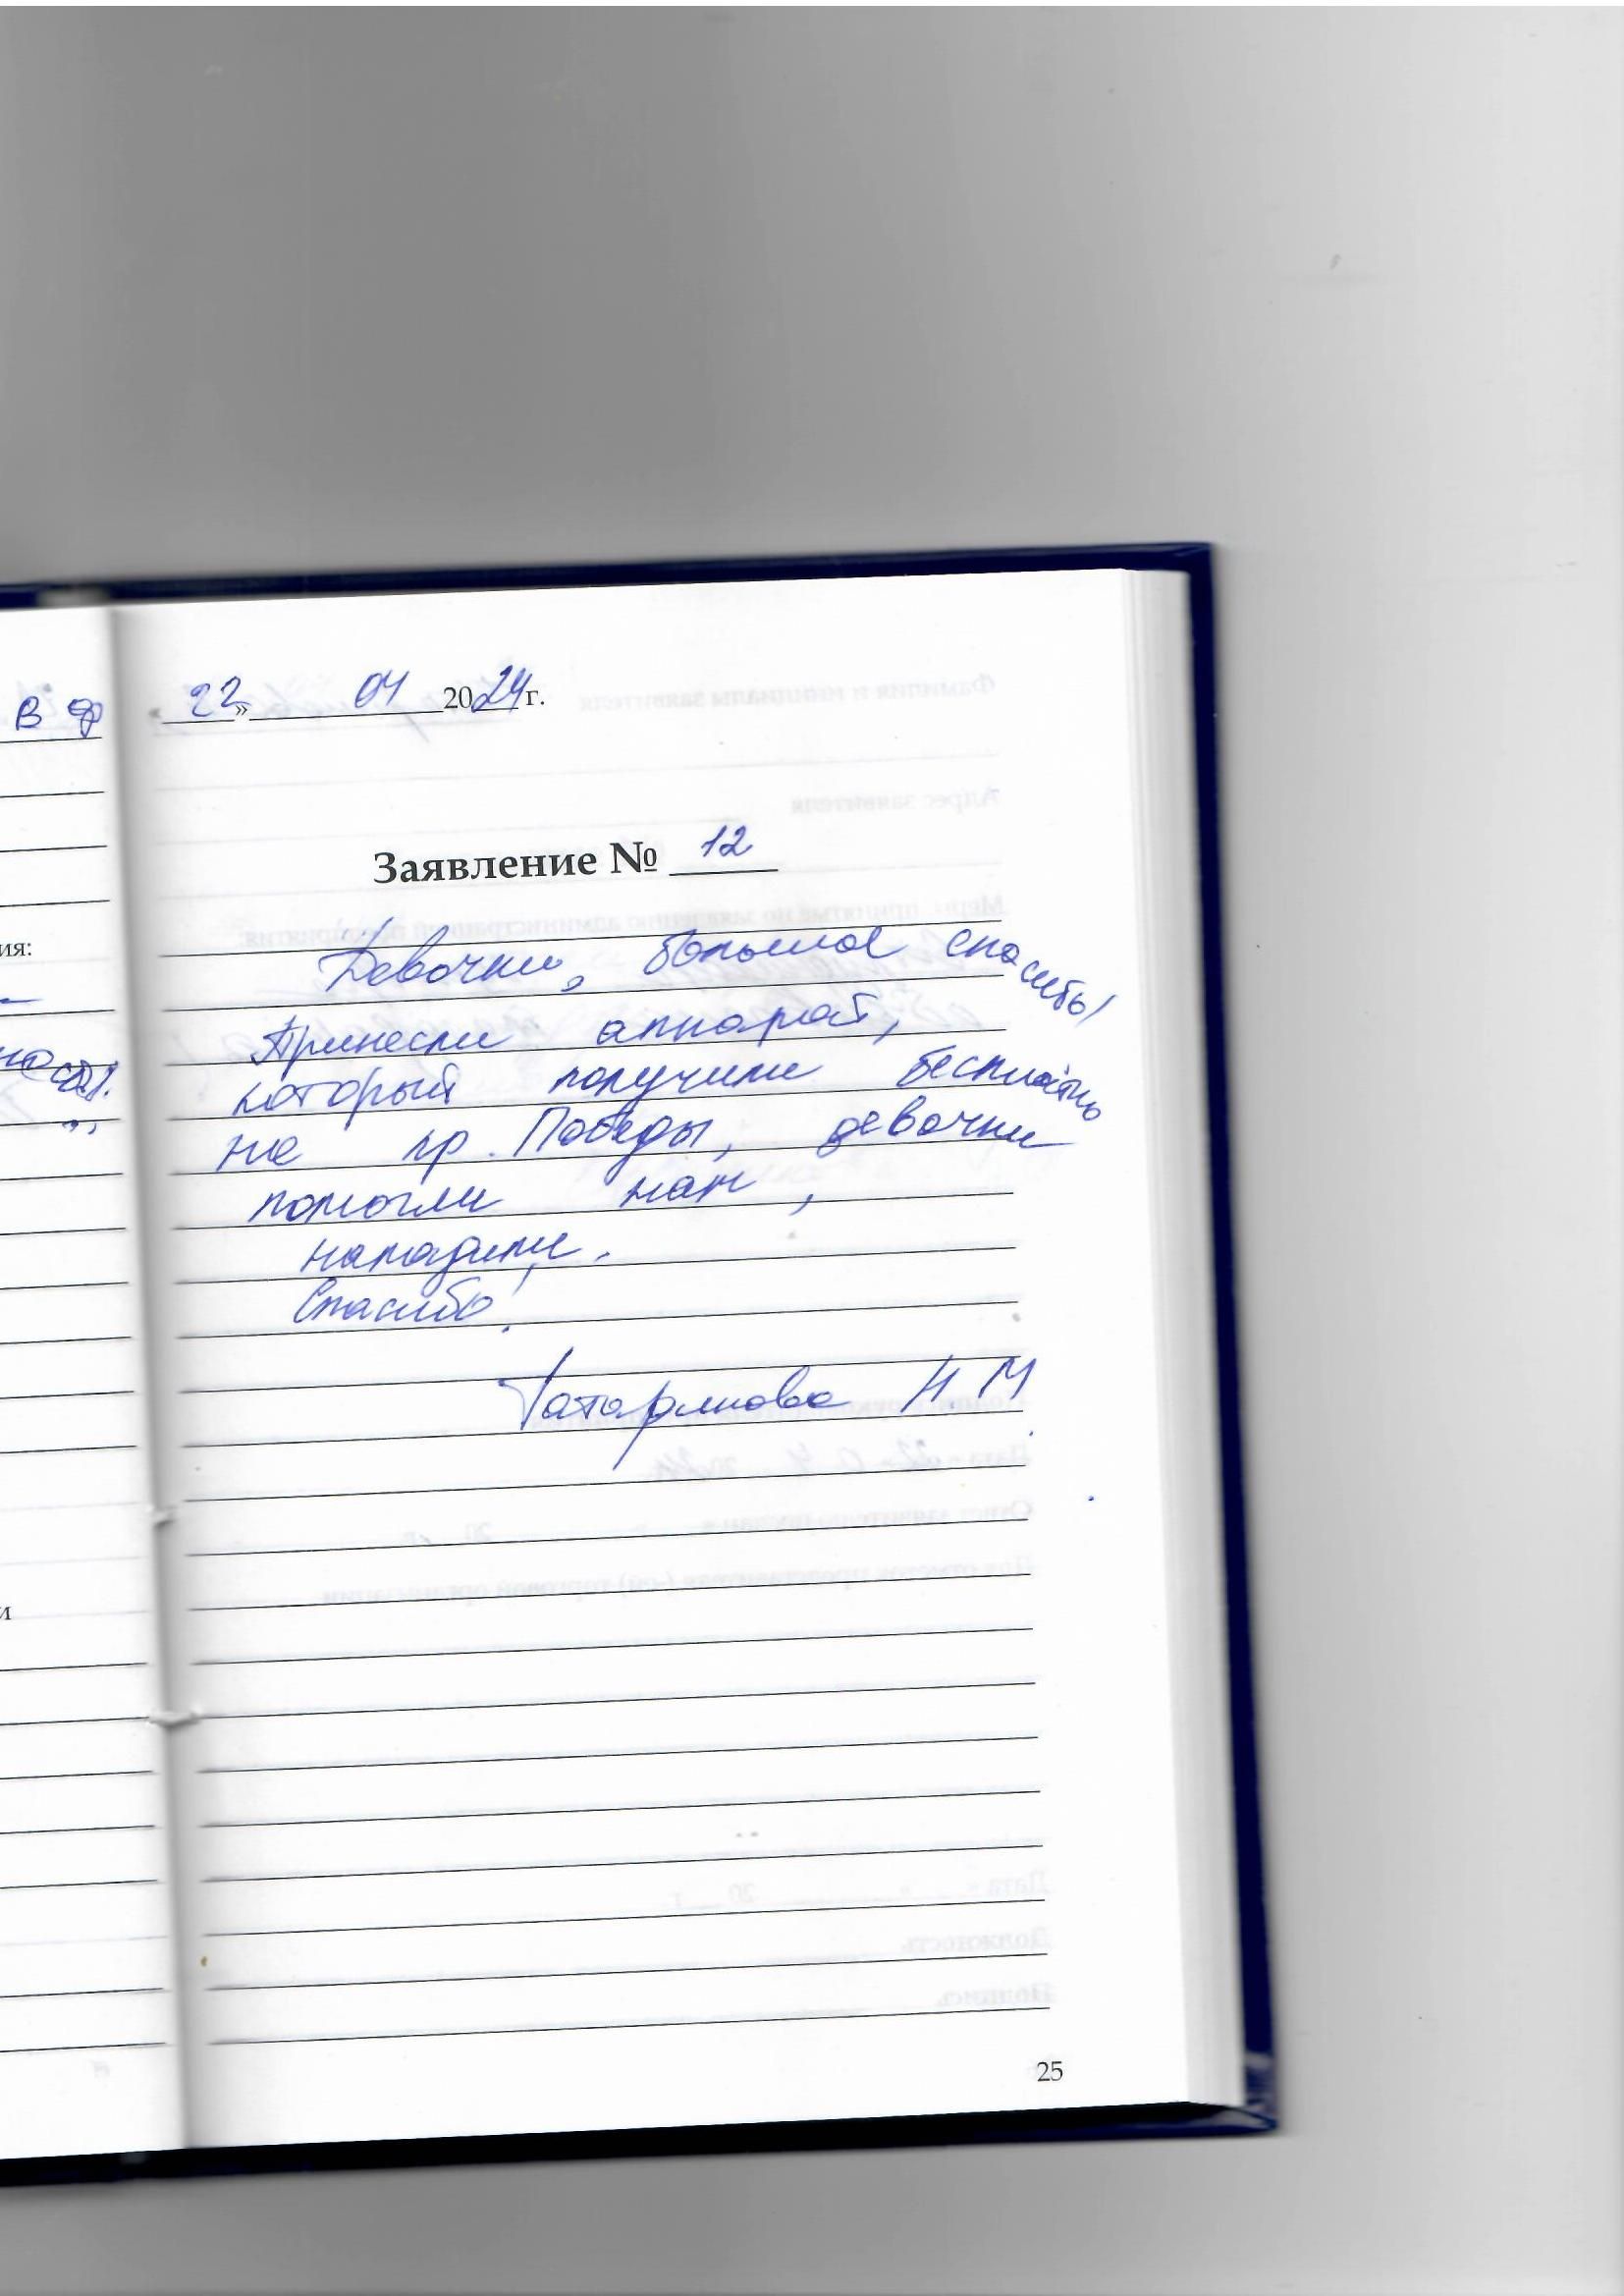 В Ф
ия:
и
«22» 04 2024 г.
Заявление № 12
Девочки, большое спасибо!
Принесли аппарат,
который получили бесплатно
на пр. Победы, девочки
помогли нам,
наладили.
Спасибо!
Татаринова Н. М.
25